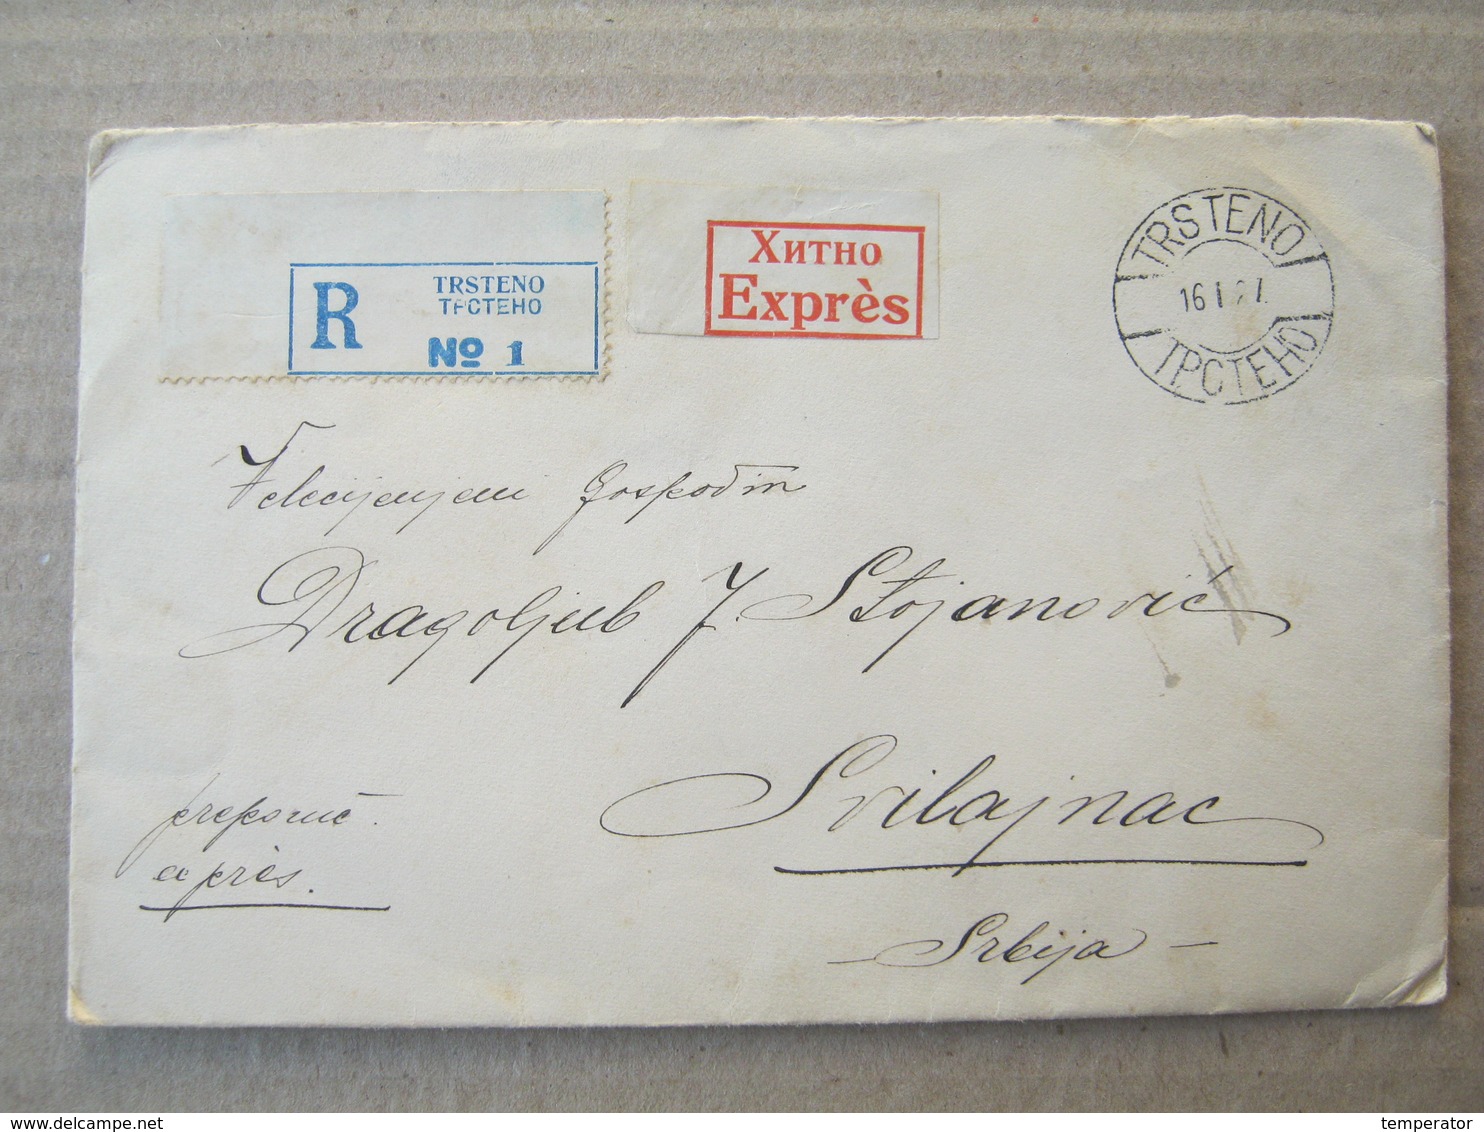 R
TRSTENO
ТРСТЕНО
№ 1
Хитно
Exprès
TRSTENO
16 I 27
ТРСТЕНО
Velecijenjeni Gospodin
Dragoljub J. Stojanović
Svilajnac
preporuč.
exprès.
— Srbija —
www.delcampe.net
temperator